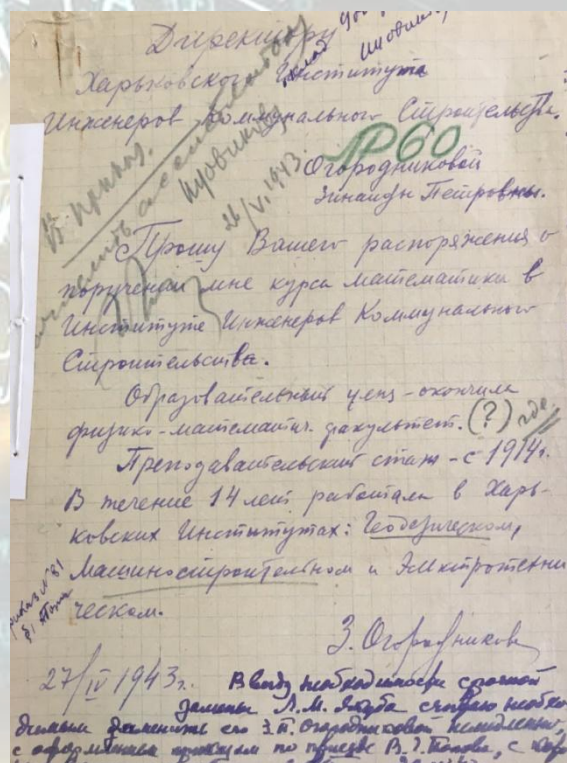 Директору
Харьковского Института
Инженеров Коммунального Строительства.
№ 60
Огородниковой
Зинаиды Петровны.
В приказ.
26/VI.1943.
Прошу Вашего распоряжения о
поручении мне курса математики в
Институте Инженеров Коммунального
Строительства.
Образовательный ценз - окончила
физико-математич. факультет. (?) где
Преподавательский стаж - с 1914 г.
В течение 14 лет работала в Харь-
ковских Институтах: Геодезическом,
Машиностроительном и Электротехни
ческом.
приказ № 81
З. Огородникова
27/IV 1943 г.
Ввиду необходимости срочной
замены Л.М. считаю необхо
димым заменить его З.П. Огородниковой немедленно,
с по приезде В. Г. Попова, с